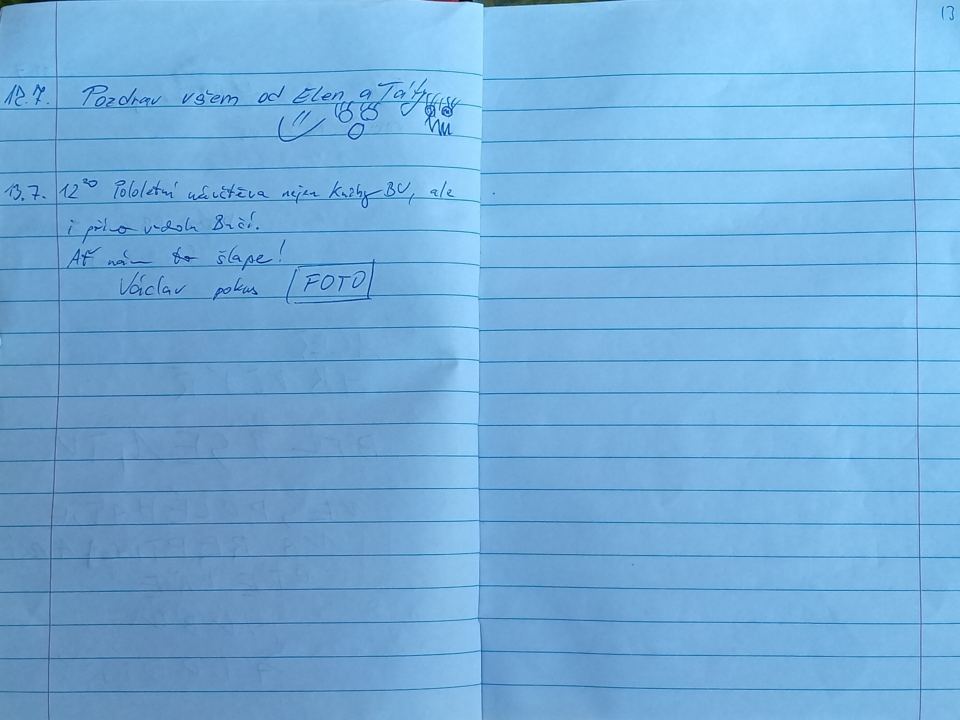 13
12.7. Pozdrav všem od Elen a Táty
13.7. 12²⁰ Pololetní návštěva nejen knihy BV, ale
i
Ať nám to šlape!
Václav pokus FOTO